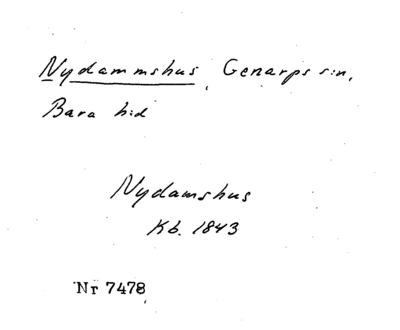 Nydammshus, Genarps sn,
Bara hd
Nydamshus
Kb. 1843
Nr 7478